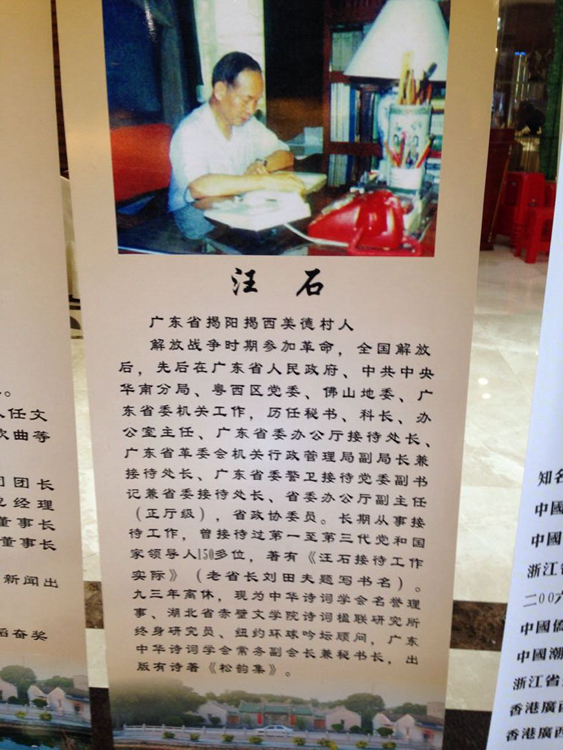 汪石
广东省揭阳揭西美德村人
解放战争时期参加革命，全国解放
后，先后在广东省人民政府、中共中央
华南分局、粤西区党委、佛山地委、广
东省委机关工作，历任秘书、科长、办
公室主任、广东省委办公厅接待处长、
广东省革委会机关行政管理局副局长兼
接待处长、广东省委警卫接待党委副书
记兼省委接待处长、省委办公厅副主任
（正厅级），省政协委员。长期从事接
待工作，曾接待过第一至第三代党和国
家领导人150多位，著有《汪石接待工作
实际》（老省长刘田夫题写书名）。
九三年离休，现为中华诗词学会名誉理
事、湖北省赤壁文学院诗词楹联研究所
终身研究员、纽约环球吟坛顾问，广东
中华诗词学会常务副会长兼秘书长，出
版有诗著《松韵集》。
人任文
歌曲等
司团长
总经理
董事长
董事长
新闻出
韬奋奖
知名
中國
中國
浙江省
二00六
中國僑
中國潮
浙江省
香港廣西
香港廣西